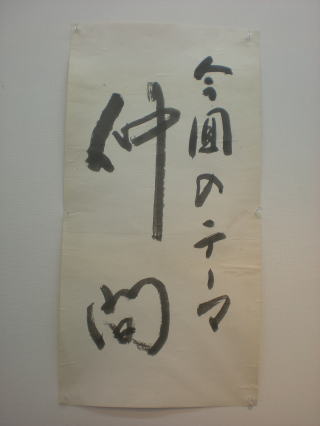 今回のテーマ
仲間